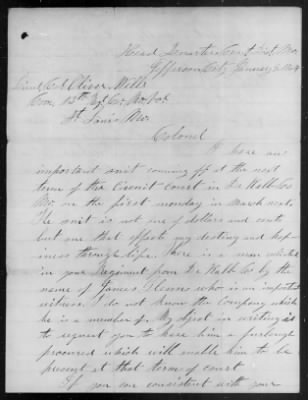 Head Quarters Cent Dist Mo
Jefferson City January
Lieut Col Oliver Wells
Com, 12th Regt Cav Mo Vol
St Louis Mo
Colonel
I have an
important suit coming off at the next
term of the Circuit Court in De Kalb Co
Mo on the first monday in March next.
The suit is not one of dollars and cents
but one that effects my destiny and hap-
iness through life. There is a man
in your Regiment from De Kalb Co by the
name of James who is an important
witness. I do not know the Company which
he is a member of. My object in writing is
to request you to have him a furlough
procured which will enable him to be
present at that term of court
If you can consistent with your